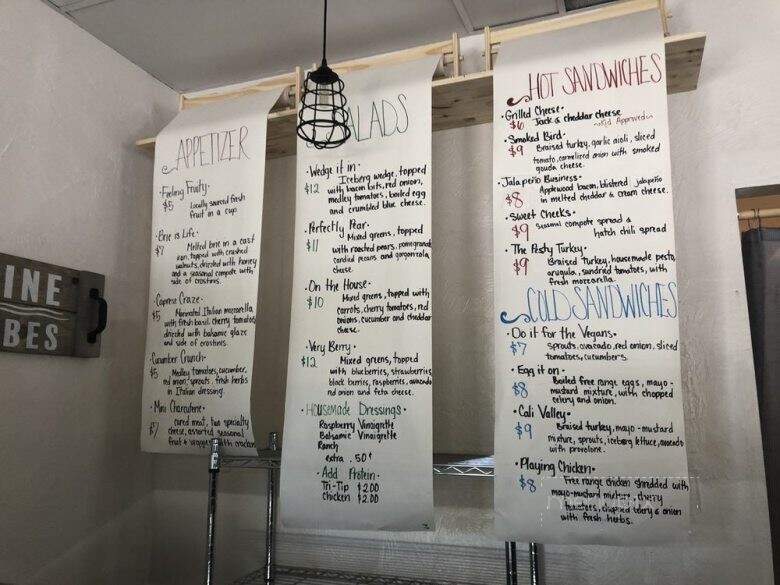 INE
BES
APPETIZER
• Feeling Fruity •
$5 Locally sourced fresh
fruit in a cup
• Brie is Life •
$7 Melted brie in a cast
iron, topped with crushed
walnuts, drizzled with honey
and a seasonal compote with
side of crostinis.
• Caprese Craze •
$5 Marinated Italian mozzarella
with fresh basil, cherry tomatoes
drizzled with balsamic glaze
and side of crostinis.
• Cucumber Crunch •
$5 Medley tomatoes, cucumber,
red onion, sprouts, fresh herbs
in Italian dressing.
• Mini Charcuterie •
$7 cured meat, two specialty
cheese, assorted seasonal
fruit & veggies with crackers
SALADS
• Wedge it in •
$12 Iceberg wedge, topped
with bacon bits, red onion,
medley tomatoes, boiled egg
and crumbled blue cheese.
• Perfectly Pear •
$11 Mixed greens, topped
with roasted pears, pomegranate
candied pecans and gorgonzola
cheese.
• On the House •
$10 Mixed greens, topped with
carrots, cherry tomatoes, red
onions, cucumber and cheddar
cheese.
• Very Berry •
$12 Mixed greens, topped
with blueberries, strawberries,
black berries, raspberries, avocado
red onion and feta cheese.
• Housemade Dressings •
Raspberry Vinaigrette
Balsamic Vinaigrette
Ranch
extra .50¢
• Add Protein •
Tri-Tip $2.00
Chicken $2.00
HOT SANDWICHES
• Grilled Cheese •
$6 Jack & cheddar cheese
~Kid Approved~
• Smoked Bird •
$9 Braised turkey, garlic aioli, sliced
tomato, carmelized onion with smoked
gouda cheese.
• Jalapeño Business •
$8 Applewood bacon, blistered jalapeño
in melted cheddar & cream cheese.
• Sweet Cheeks •
$9 Seasonal compote spread &
hatch chili spread
• The Pesty Turkey •
$9 Braised turkey, housemade pesto,
arugula, sundried tomatoes, with
fresh mozzarella.
COLD SANDWICHES
• Do it for the Vegans •
$7 sprouts, avocado, red onion, sliced
tomatoes, cucumbers.
• Egg it on •
$8 Boiled free range eggs, mayo-
mustard mixture, with chopped
celery and onion.
• Cali Valley •
$9 Braised turkey, mayo-mustard
mixture, sprouts, iceberg lettuce, avocado
with provolone.
• Playing Chicken •
$8 Free range chicken shredded with
mayo-mustard mixture, cherry
tomatoes, chopped celery & onion
with fresh herbs.